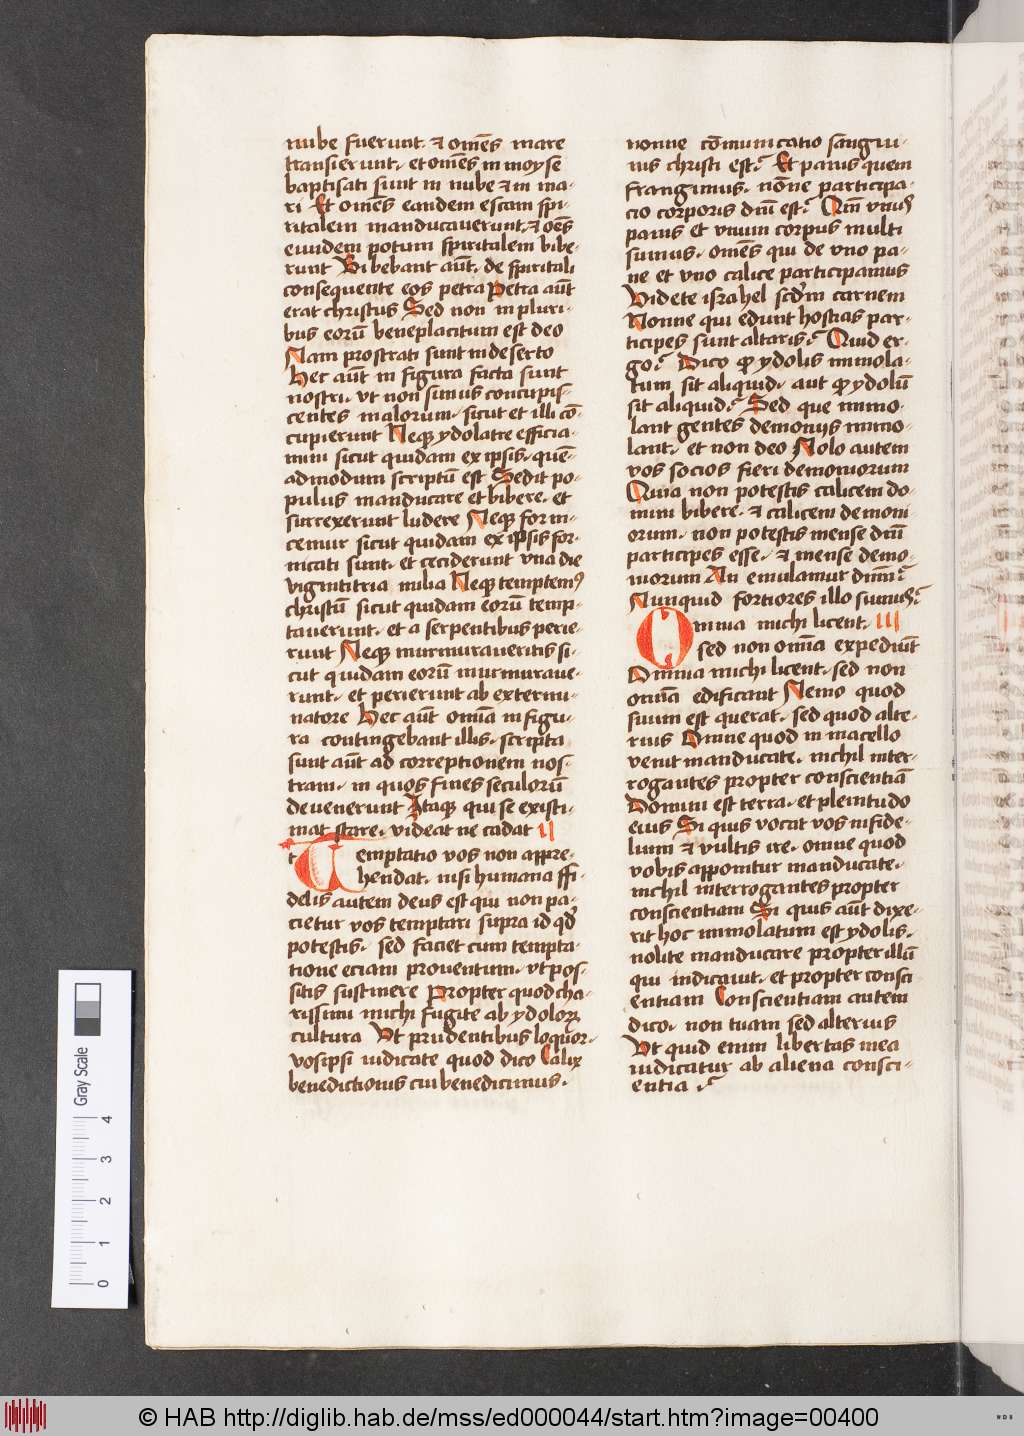 nube fuerunt. et om̄es mare
transierunt. et om̄es in moyse
baptisati sunt in nube et in ma-
ri Et om̄es eandem escam spi-
ritalem manducauerunt. et oēs
euidem potum spiritalem bibe-
runt Bibebant aūt. de spiritali
consequente eos petra Petra aūt
erat christus Sed non in pluri-
bus eorū beneplacitum est deo
Nam prostrati sunt in deserto
Hec aūt in figura facta sunt
nostri. vt non simus concupis-
centes malorum. sicut et illi cō-
cupierunt Neqꝫ ydolatre efficia-
mini sicut quidam ex ipsis. que-
admodum scriptū est Sedit po-
pulus manducare et bibere. et
surrexerunt ludere Neqꝫ forni-
cemur sicut quidam ex ipsis for-
nicati sunt. et ceciderunt vna die
vigintitria milia Neqꝫ temptemꝰ
christū sicut quidam eorū temp-
tauerunt. et a serpentibus perie-
runt Neqꝫ murmuraueritis si-
cut quidam eorū murmuraue-
runt. et perierunt ab extermi-
natore Hec aūt om̄ia in figu-
ra contingebant illis. scripta
sunt aūt ad correptionem nos-
tram. in quos fines seculorū
deuenerunt Itaqꝫ qui se existi-
mat stare. videat ne cadat II
Temptatio vos non appre-
hendat. nisi humana ffi-
delis autem deus est qui non pa-
cietur vos temptari supra id qđ
potestis. sed faciet cum tempta-
tione eciam prouentum. vt pos-
sitis sustinere Propter quod cha-
rissimi michi fugite ab ydoloꝝ
cultura Vt prudentibus loquor.
vosipsi iudicate quod dico Calix
benedictionis cui benedicimus.
nonne cōmunicatio sangui-
nis christi est? Et panis quem
frangimus. nōne participa-
cio corporis dn̄i est? Qm̄ vnuꝰ
panis et vnum corpus multi
sumus. om̄es qui de vno pa-
ne et vno calice participamus
Videte israhel scd̄m carnem
Nonne qui edunt hostias par-
ticipes sunt altaris? Quid er-
go? Dico ꝙ ydolis immola-
tum sit aliquid. aut ꝙ ydolū
sit aliquid? Sed que immo-
lant gentes demoniis immo-
lant. et non deo Nolo autem
vos socios fieri demoniorum
Quia non potestis calicem do-
mini bibere. et calicem demoni-
orum. non potestis mense dn̄i
participes esse. et mense demo-
niorum An emulamur dn̄m?
Nunquid fortiores illo sumus?
Omnia michi licent. III
sed non om̄ia expediūt
Omnia michi licent. sed non
om̄ia edificant Nemo quod
suum est querat. sed quod alte-
rius Omne quod in macello
venit manducate. nichil inter-
rogantes propter conscientiā
Domini est terra. et plenitudo
eius Si quis vocat vos infide-
lium et vultis ire. omne quod
vobis apponitur manducate.
nichil interrogantes propter
conscientiam Si quis aūt dixe-
rit hoc immolatum est ydolis.
nolite manducare propter illū
qui indicauit. et propter consci
entiam Conscientiam autem
dico. non tuam sed alterius
Vt quid enim libertas mea
iudicatur ab aliena consci-
entia?
Gray Scale
0 1 2 3 4
© HAB http://diglib.hab.de/mss/ed000044/start.htm?image=00400